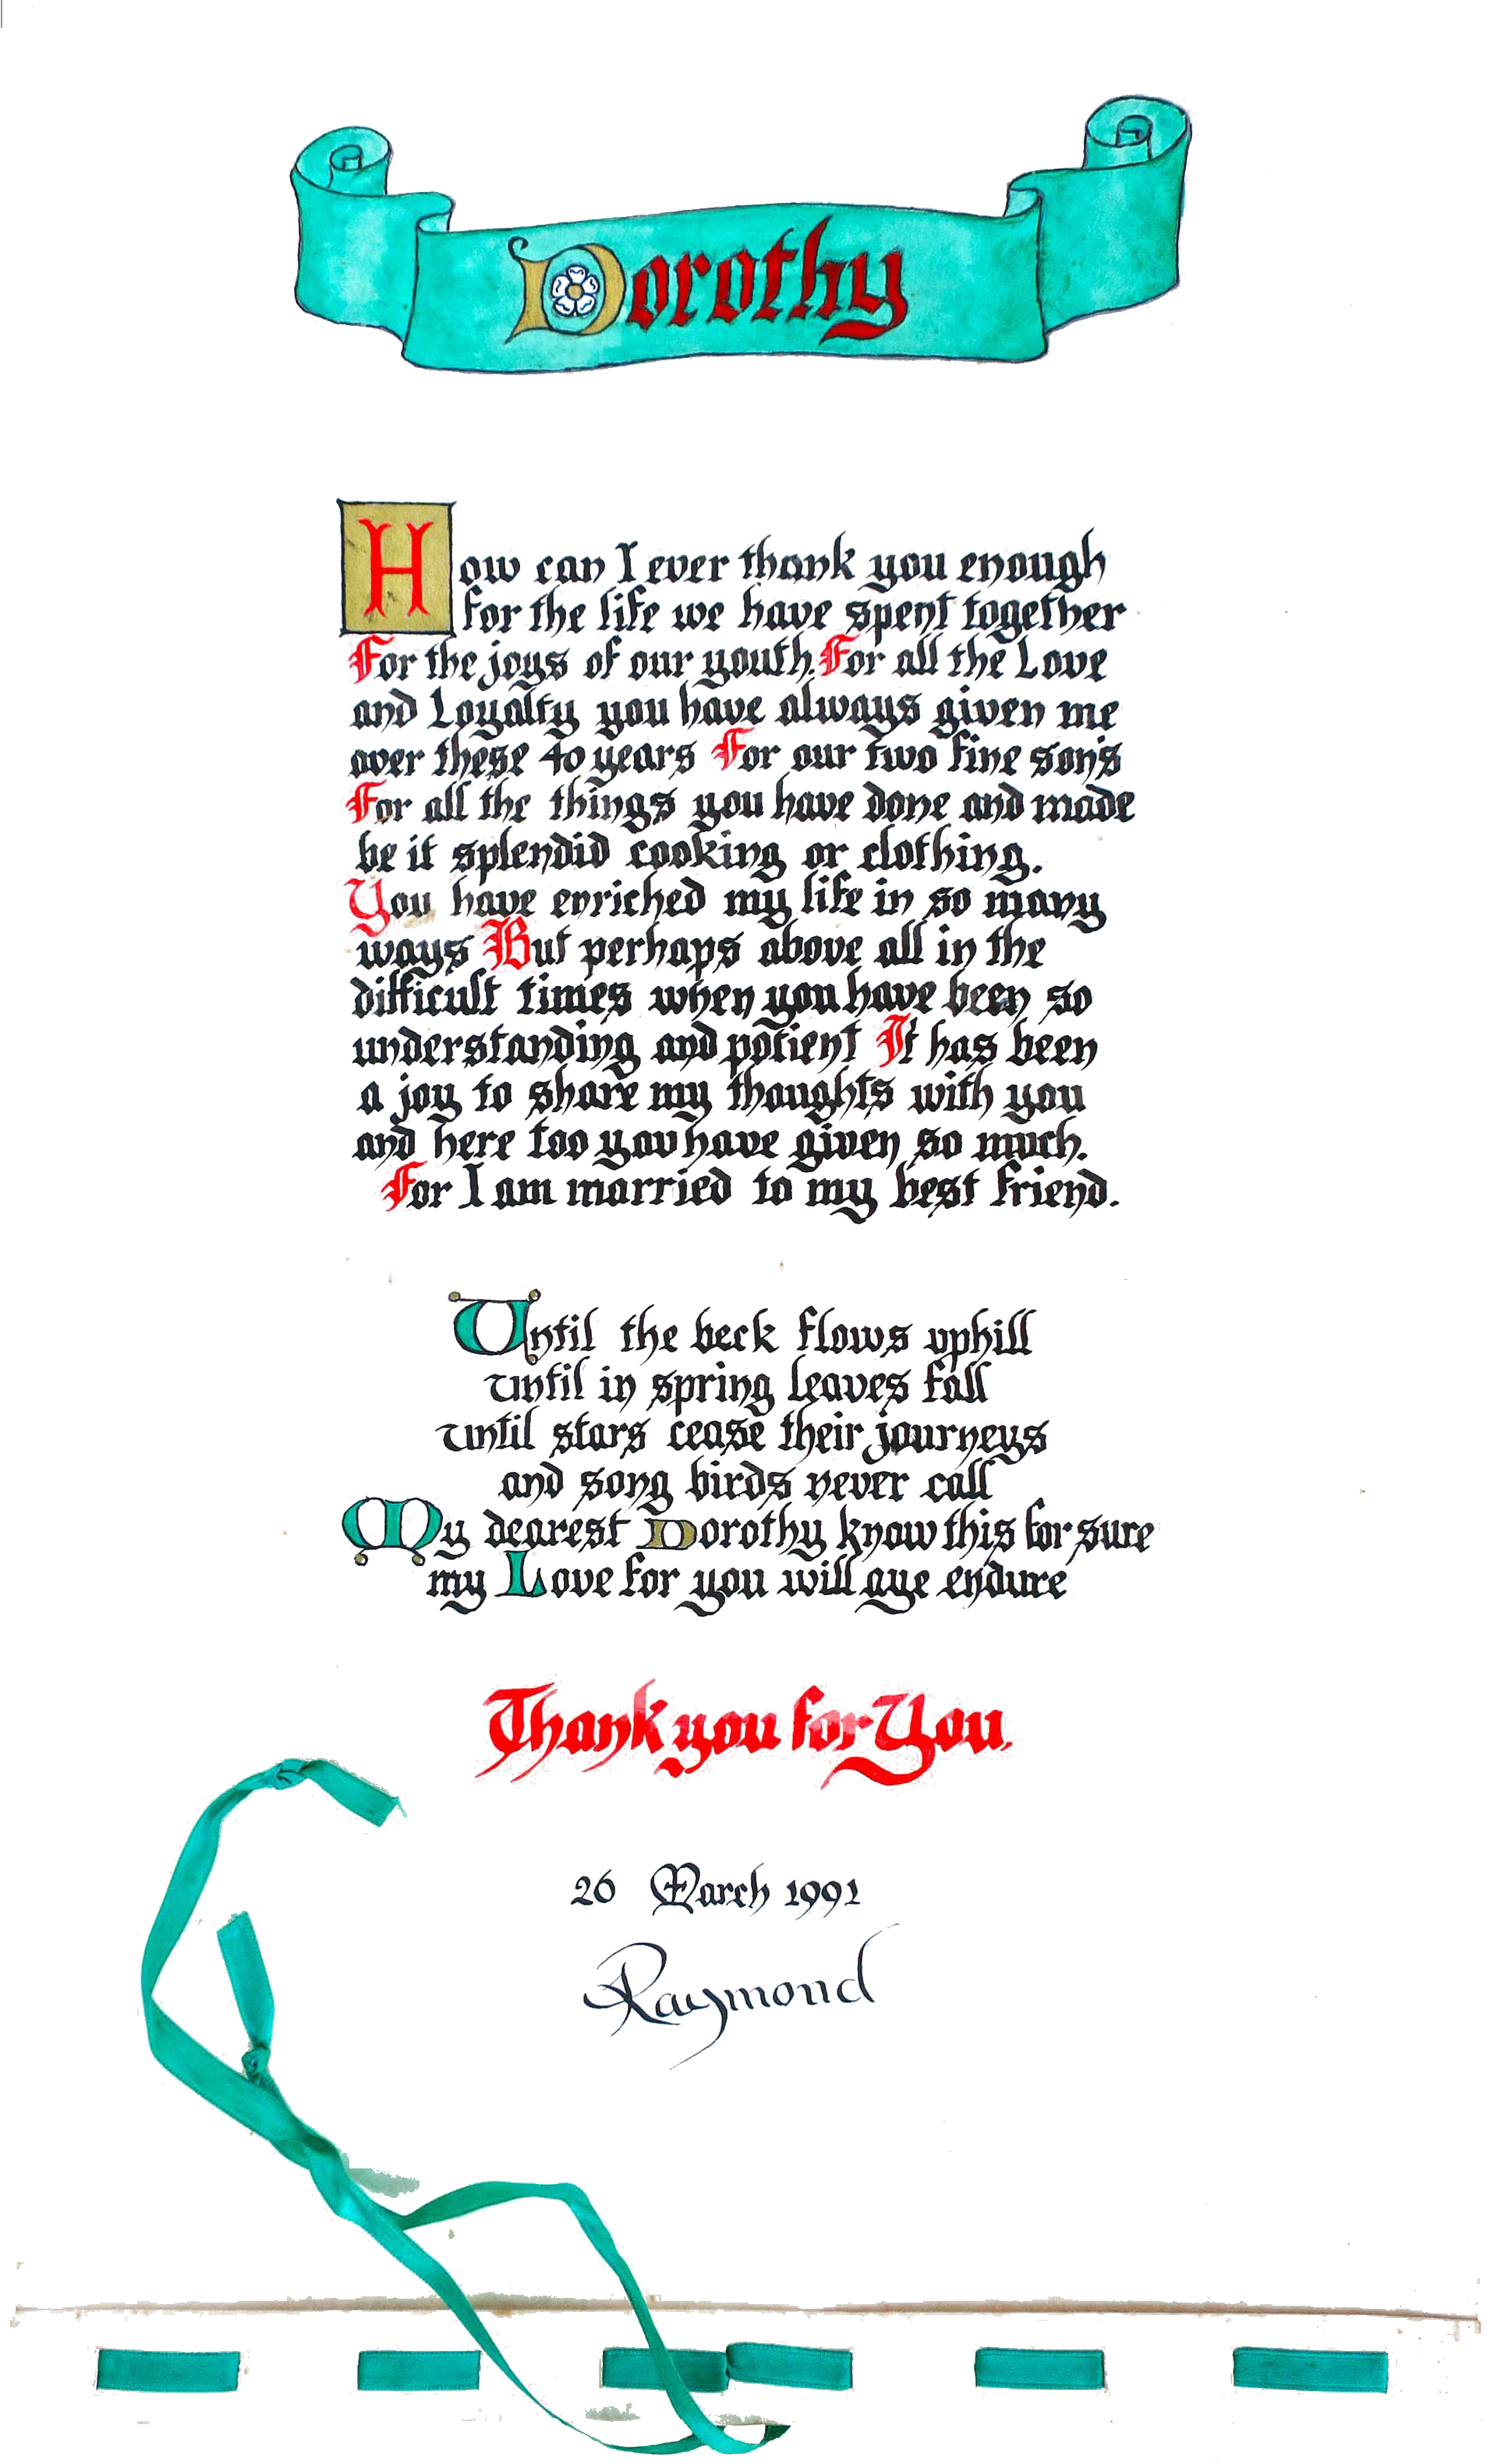 Dorothy
How can I ever thank you enough
for the life we have spent together
For the joys of our youth. For all the Love
and Loyalty you have always given me
over these 40 years For our two fine sons
For all the things you have done and made
be it splendid cooking or clothing.
You have enriched my life in so many
ways But perhaps above all in the
difficult times when you have been so
understanding and patient It has been
a joy to share my thoughts with you
and here too you have given so much.
For I am married to my best friend.
Until the beck flows uphill
until in spring leaves fall
until stars cease their journeys
and song birds never call
My dearest Dorothy know this for sure
my Love for you will aye endure
Thank you for You.
26 March 1991
Raymond